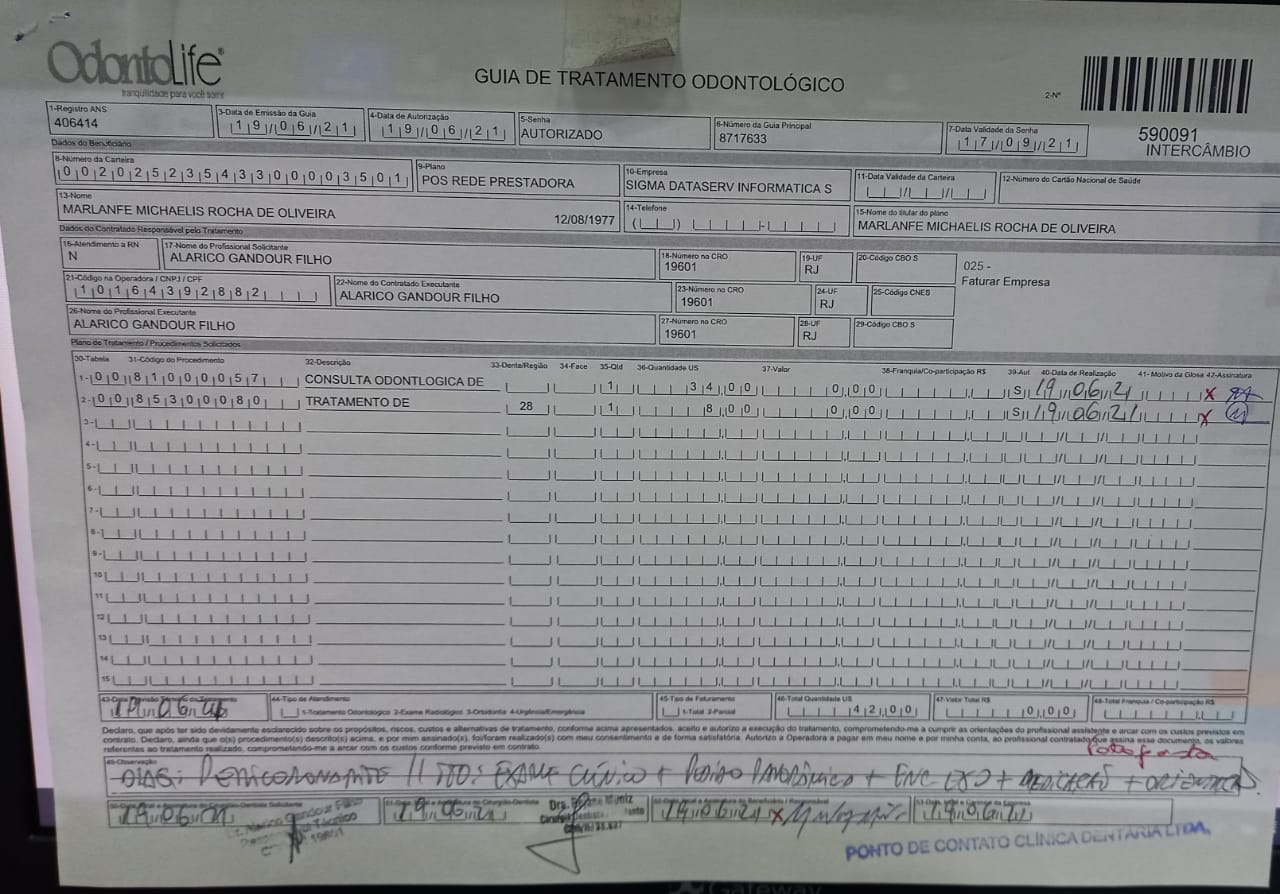 OdontoLife
tranquilidade para você sorrir
GUIA DE TRATAMENTO ODONTOLÓGICO
2-Nº
590091
INTERCÂMBIO
1-Registro ANS
406414
3-Data de Emissão da Guia
19/06/21
4-Data de Autorização
19/06/21
5-Senha
AUTORIZADO
6-Número da Guia Principal
8717633
7-Data Validade da Senha
17/09/21
Dados do Beneficiário
8-Número da Carteira
00202523543300003501
9-Plano
POS REDE PRESTADORA
10-Empresa
SIGMA DATASERV INFORMATICA S
11-Data Validade da Carteira
12-Número do Cartão Nacional de Saúde
13-Nome
MARLANFE MICHAELIS ROCHA DE OLIVEIRA 12/08/1977
14-Telefone
15-Nome do titular do plano
MARLANFE MICHAELIS ROCHA DE OLIVEIRA
Dados do Contratado Responsável pelo Tratamento
16-Atendimento a RN
N
17-Nome do Profissional Solicitante
ALARICO GANDOUR FILHO
18-Número no CRO
19601
19-UF
RJ
20-Código CBO S
025 -
Faturar Empresa
21-Código na Operadora / CNPJ / CPF
10164392882
22-Nome do Contratado Executante
ALARICO GANDOUR FILHO
23-Número no CRO
19601
24-UF
RJ
25-Código CNES
26-Nome do Profissional Executante
ALARICO GANDOUR FILHO
27-Número no CRO
19601
28-UF
RJ
29-Código CBO S
Plano de Tratamento / Procedimentos Solicitados
30-Tabela 31-Código do Procedimento 32-Descrição 33-Dente/Região 34-Face 35-Qtd 36-Quantidade US 37-Valor 38-Franquia/Co-participação R$ 39-Aut 40-Data de Realização 41- Motivo da Glosa 42-Assinatura
1- 00 81000057 CONSULTA ODONTLOGICA DE 1 34,00 0,00 S 19/06/21 X
2- 00 85300080 TRATAMENTO DE 28 1 8,00 0,00 S 19/06/21 X
3-
4-
5-
6-
7-
8-
9-
10
11
12
13
14
15
19/06/21
44-Tipo de Atendimento
1-Tratamento Odontológico 2-Exame Radiológico 3-Ortodontia 4-Urgência/Emergência
45-Tipo de Faturamento
1-Total 2-Parcial
46-Total Quantidade US
42,00
47-Valor Total R$
0,00
48-Total Franquia / Co-participação R$
Declaro, que após ter sido devidamente esclarecido sobre os propósitos, riscos, custos e alternativas de tratamento, conforme acima apresentados, aceito e autorizo a execução do tratamento, comprometendo-me a cumprir as orientações do profissional assistente e arcar com os custos previstos em
contrato. Declaro, ainda que o(s) procedimento(s) descrito(s) acima, e por mim assinado(s), foi/foram realizado(s) com meu consentimento e de forma satisfatória. Autorizo a Operadora a pagar em meu nome e por minha conta, ao profissional contratado que assina esse documento, os valores
referentes ao tratamento realizado, comprometendo-me a arcar com os custos conforme previsto em contrato.
49-Observação
DIAG: PERICORONARITE // TTO: EXAME CLÍNICO + PEDIDO PANORÂMICA + ENC EXO + MEDICAÇÃO +
19/06/21
19/06/21
19/06/21 X
19/06/21
PONTO DE CONTATO CLÍNICA DENTÁRIA LTDA.
Gateway